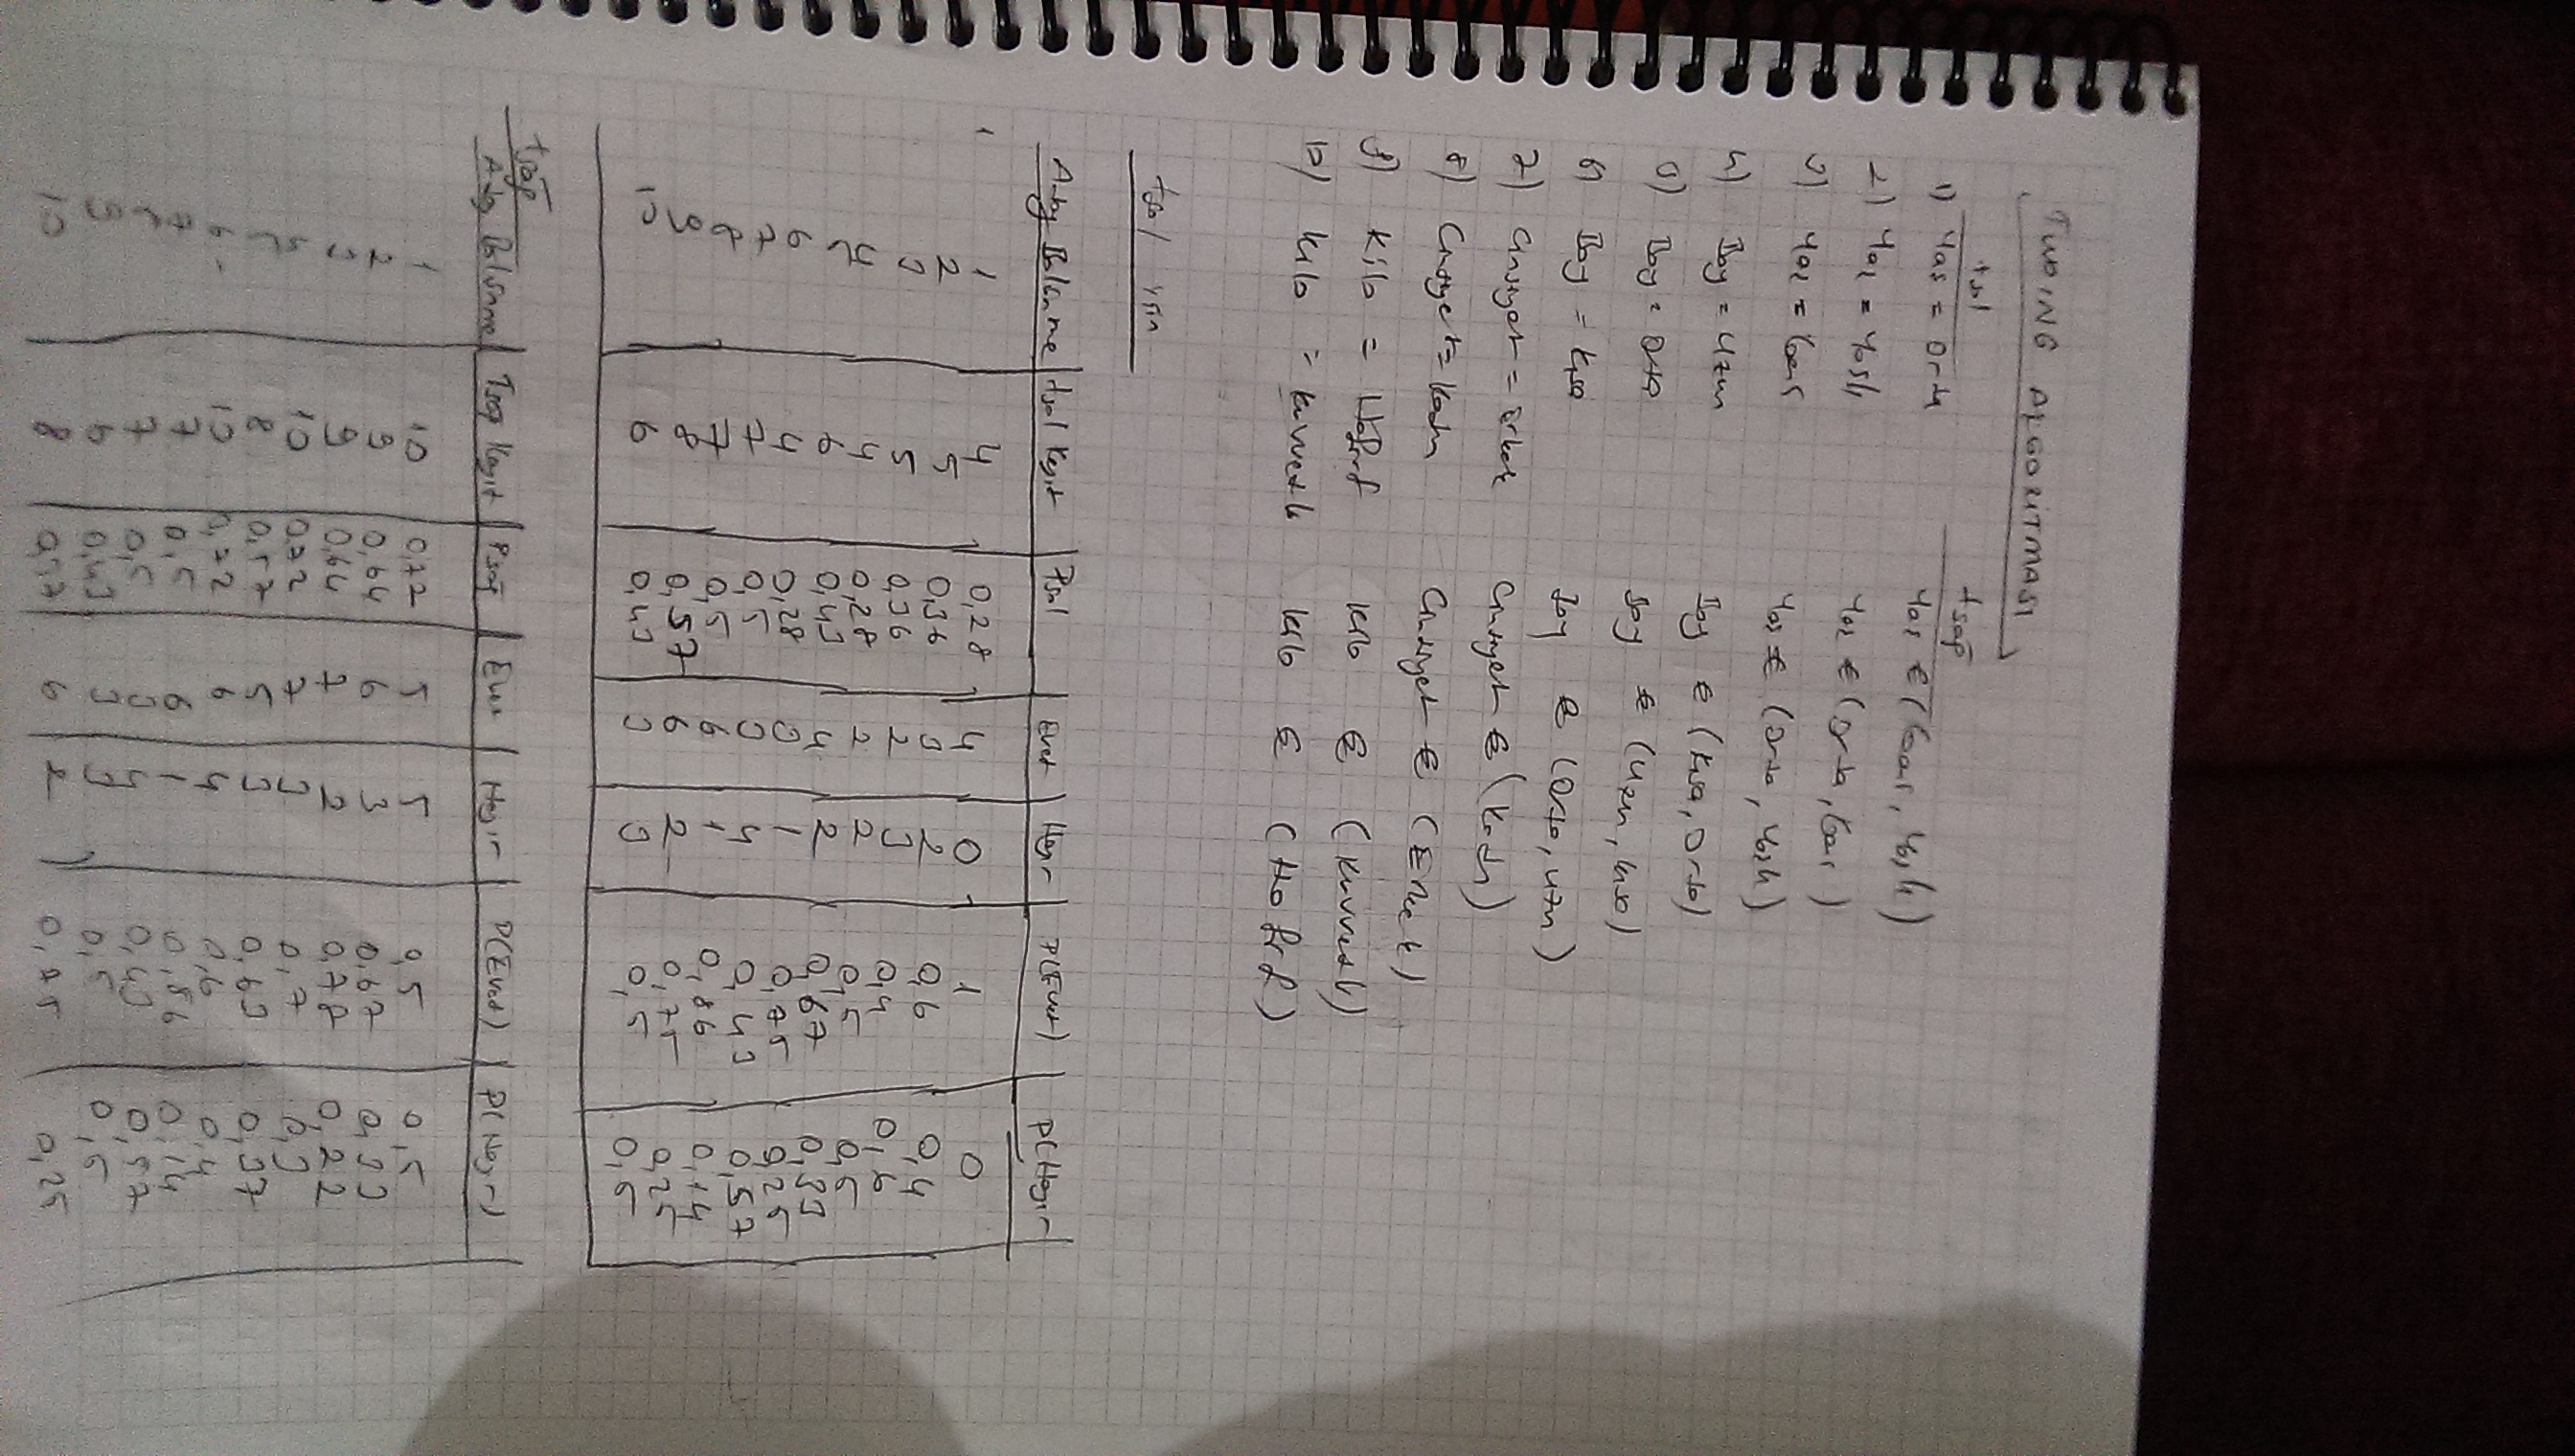 TWOING ALGORİTMASI
tsol tsağ
1) Yas = Orta Yas ∈ (Genc, Yaslı)
2) Yas = Yaslı Yas ∈ (Orta, Genc)
3) Yas = Genc Yas ∈ (Orta, Yaslı)
4) Boy = Uzun Boy ∈ (Kısa, Orta)
5) Boy = Orta Boy ∈ (Uzun, Kısa)
6) Boy = Kısa Boy ∈ (Orta, Uzun)
7) Cinsiyet = Erkek Cinsiyet ∈ (Kadın)
8) Cinsiyet = Kadın Cinsiyet ∈ (Erkek)
9) Kilo = Hafif Kilo ∈ (Kuvvetli)
10) Kilo = Kuvvetli Kilo ∈ (Hafif)
tsol için
Aday Bölünme tsol Kayıt Psol Evet Hayır P(Evet) P(Hayır)
1 4 0,28 4 0 1 0
2 5 0,36 3 2 0,6 0,4
3 5 0,36 2 3 0,4 0,6
4 4 0,28 2 2 0,5 0,5
5 6 0,43 4 2 0,67 0,33
6 4 0,28 3 1 0,75 0,25
7 7 0,5 3 4 0,43 0,57
8 7 0,5 6 1 0,86 0,14
9 8 0,57 6 2 0,75 0,25
10 6 0,43 3 3 0,5 0,5
tsağ
Aday Bölünme Tsağ Kayıt Psağ Evet Hayır P(Evet) P(Hayır)
1 10 0,72 5 5 0,5 0,5
2 9 0,64 6 3 0,67 0,33
3 9 0,64 7 2 0,78 0,22
4 10 0,72 7 3 0,7 0,3
5 8 0,57 5 3 0,63 0,37
6 10 0,72 6 4 0,6 0,4
7 7 0,5 6 1 0,56 0,14
8 7 0,5 3 4 0,43 0,57
9 6 0,43 3 3 0,5 0,5
10 8 0,57 6 2 0,75 0,25